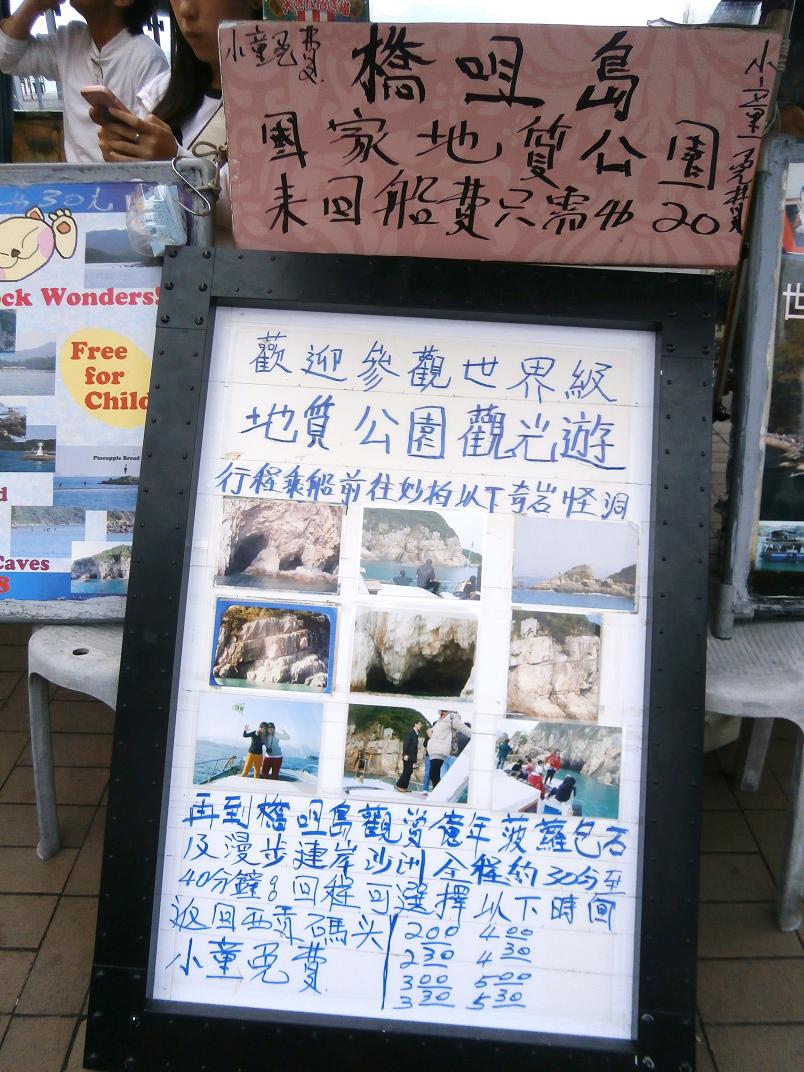 小童免費
橋咀島
小童免費
國家地質公園
来回船費只需$20
30元
ock Wonders!
Free
for
Child
Pineapple Bread
d
Caves
8
世
歡迎參觀世界級
地質公園觀光遊
行程乘船前往妙拍以下奇岩怪洞
再到橋咀島觀賞億年菠蘿包石
及漫步連岸沙洲全程約30分至
40分鐘。回程可選擇以下時間
返回西貢碼头
小童免費
2:00 4:00
2:30 4:30
3:00 5:00
3:30 5:30